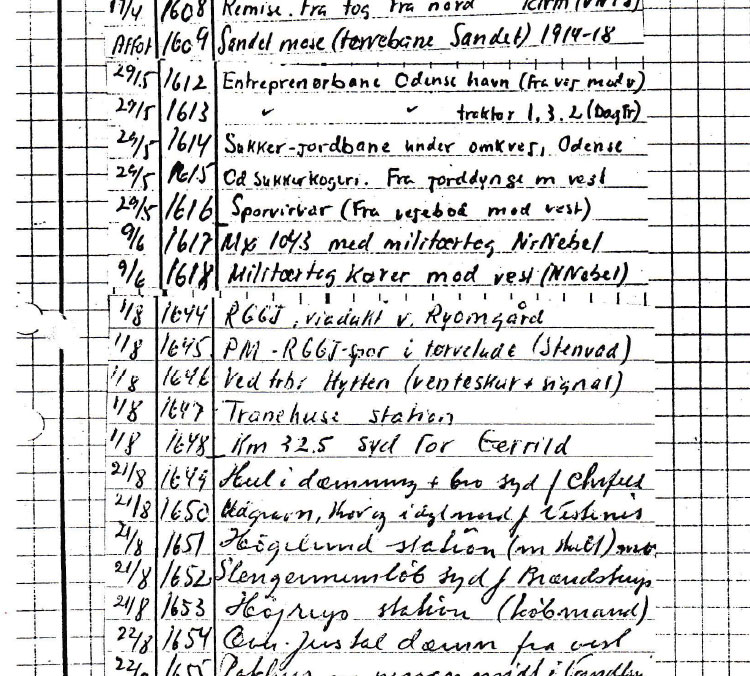 17/4 1608 Remise. Fra tog fra nord
Affot 1609 Sandet mose (tørvebane Sandet) 1914-18
29/5 1612 Entreprenørbane Odense havn (Fra vej mod v)
29/5 1613 " " traktor 1, 3, 2 (Dag Fr)
29/5 1614 Sukker-jordbane under omkvej, Odense
29/5 1615 Od Sukkerkogeri. Fra jorddynge m vest
29/5 1616 Sporvirvar (Fra vejebod mod vest)
9/6 1617 Mx 1043 med militærtog NrNebel
9/6 1618 Militærtog kører mod vest (NNebel)
1/8 1644 RGGJ, viadukt v. Ryomgård
1/8 1645 PM - RGGJ-spor i tørvelade (Stenvad)
1/8 1646 Ved trbr Hytten (venteskur + signal)
1/8 1647 Tranehuse station
1/8 1648 Km 32.5 syd for Gerrild
21/8 1649 Hul i dæmning + bro syd f
21/8 1650 f
21/8 1651 Högelund station (m skilt)
21/8 1652 syd f Brændstrup
21/8 1653 Höjrup station (købmand)
22/8 1654 Justal dæmn fra vest
22/ 1655